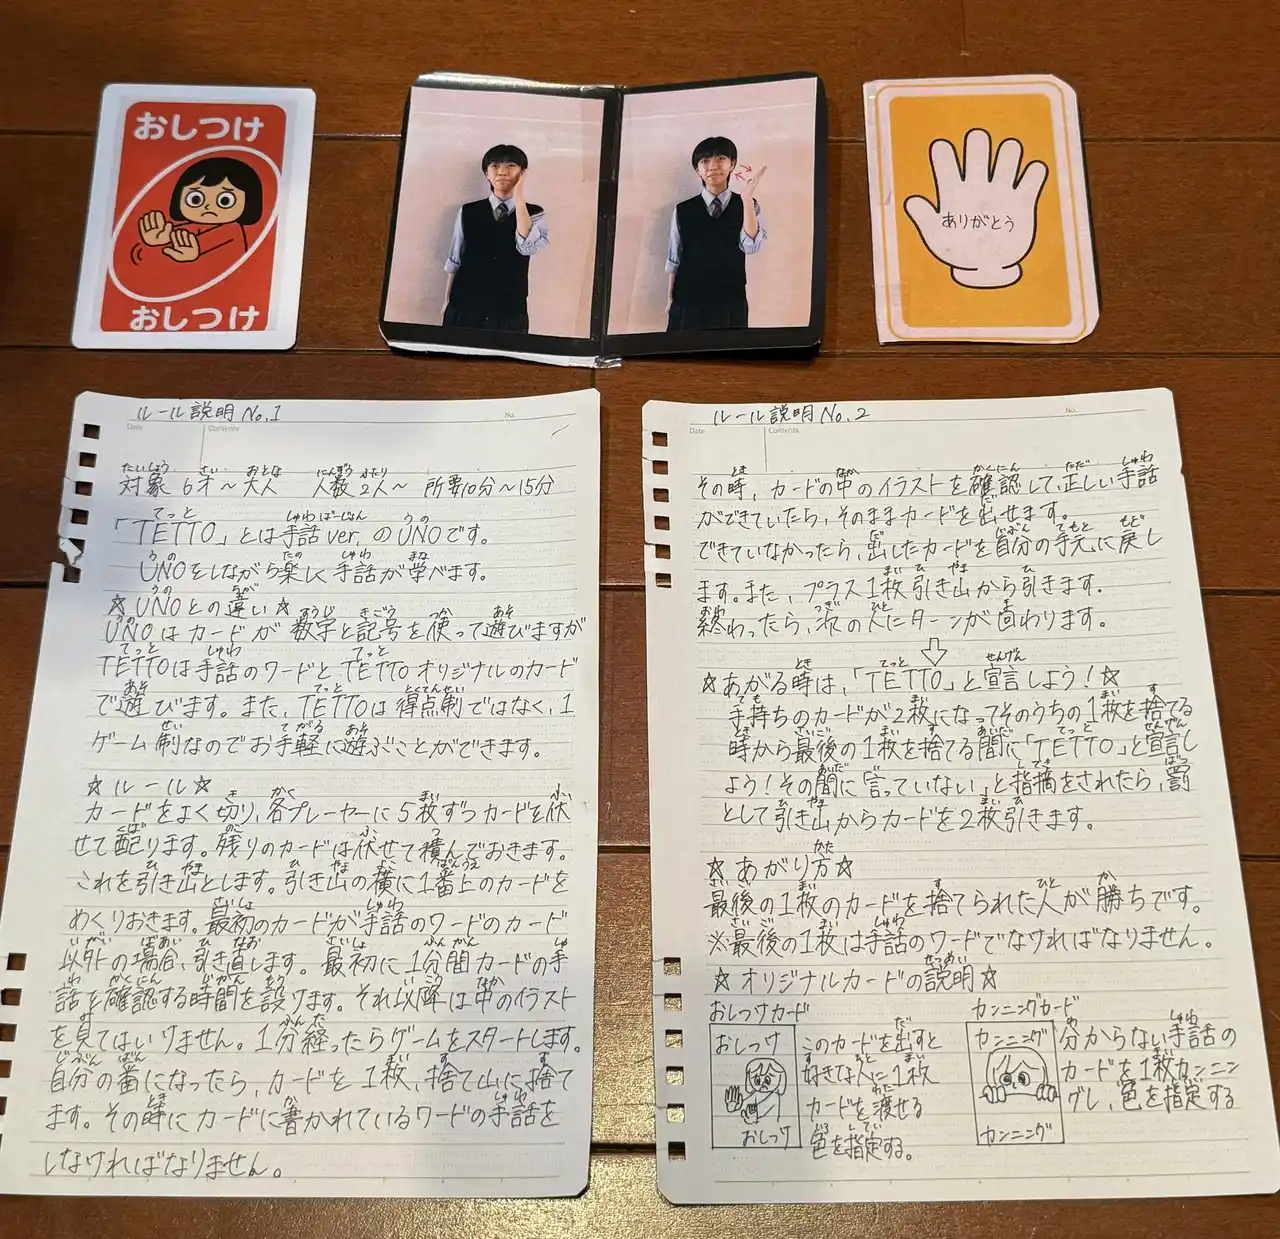 おしつけ
おしつけ
ありがとう
ルール説明 No.1
No.
Date
Contents
対象 6才~大人 人数2人~ 所要10分~15分
「TETTO」とは手話ver.のUNOです。
UNOをしながら楽しく手話が学べます。
☆UNOとの違い☆
UNOはカードが数字と記号を使って遊びますが
TETTOは手話のワードとTETTOオリジナルのカード
で遊びます。また、TETTOは得点制ではなく、1
ゲーム制なのでお手軽に遊ぶことができます。
☆ルール☆
カードをよく切り、各プレーヤーに5枚ずつカードを伏
せて配ります。残りのカードは伏せて積んでおきます。
これを引き山とします。引き山の横に1番上のカードを
めくりおきます。最初のカードが手話のワードのカード
以外の場合、引き直します。最初に1分間カードの手
話を確認する時間を設けます。それ以降は中のイラスト
を見てはいけません。1分経ったらゲームをスタートします。
自分の番になったら、カードを1枚、捨て山に捨て
ます。その時にカードに書かれているワードの手話を
しなければなりません。
ルール説明 No.2
No.
Date
Contents
その時、カードの中のイラストを確認して、正しい手話
ができていたら、そのままカードを出せます。
できていなかったら、出したカードを自分の手元に戻し
ます。また、プラス1枚引き山から引きます。
終わったら、次の人にターンが回わります。
☆あがる時は、「TETTO」と宣言しよう!☆
手持ちのカードが2枚になってそのうちの1枚を捨てる
時から最後の1枚を捨てる間に「TETTO」と宣言し
よう!その間に「言っていない」と指摘をされたら、罰
として引き山からカードを2枚引きます。
☆あがり方☆
最後の1枚のカードを捨てられた人が勝ちです。
※最後の1枚は手話のワードでなければなりません。
☆オリジナルカードの説明☆
おしつけカード
おしつけ
おしつけ
このカードを出すと
好きな人に1枚
カードを渡せる
色を指定する。
カンニングカード
カンニング
カンニング
分からない手話の
カードを1枚カンニン
グし、色を指定する